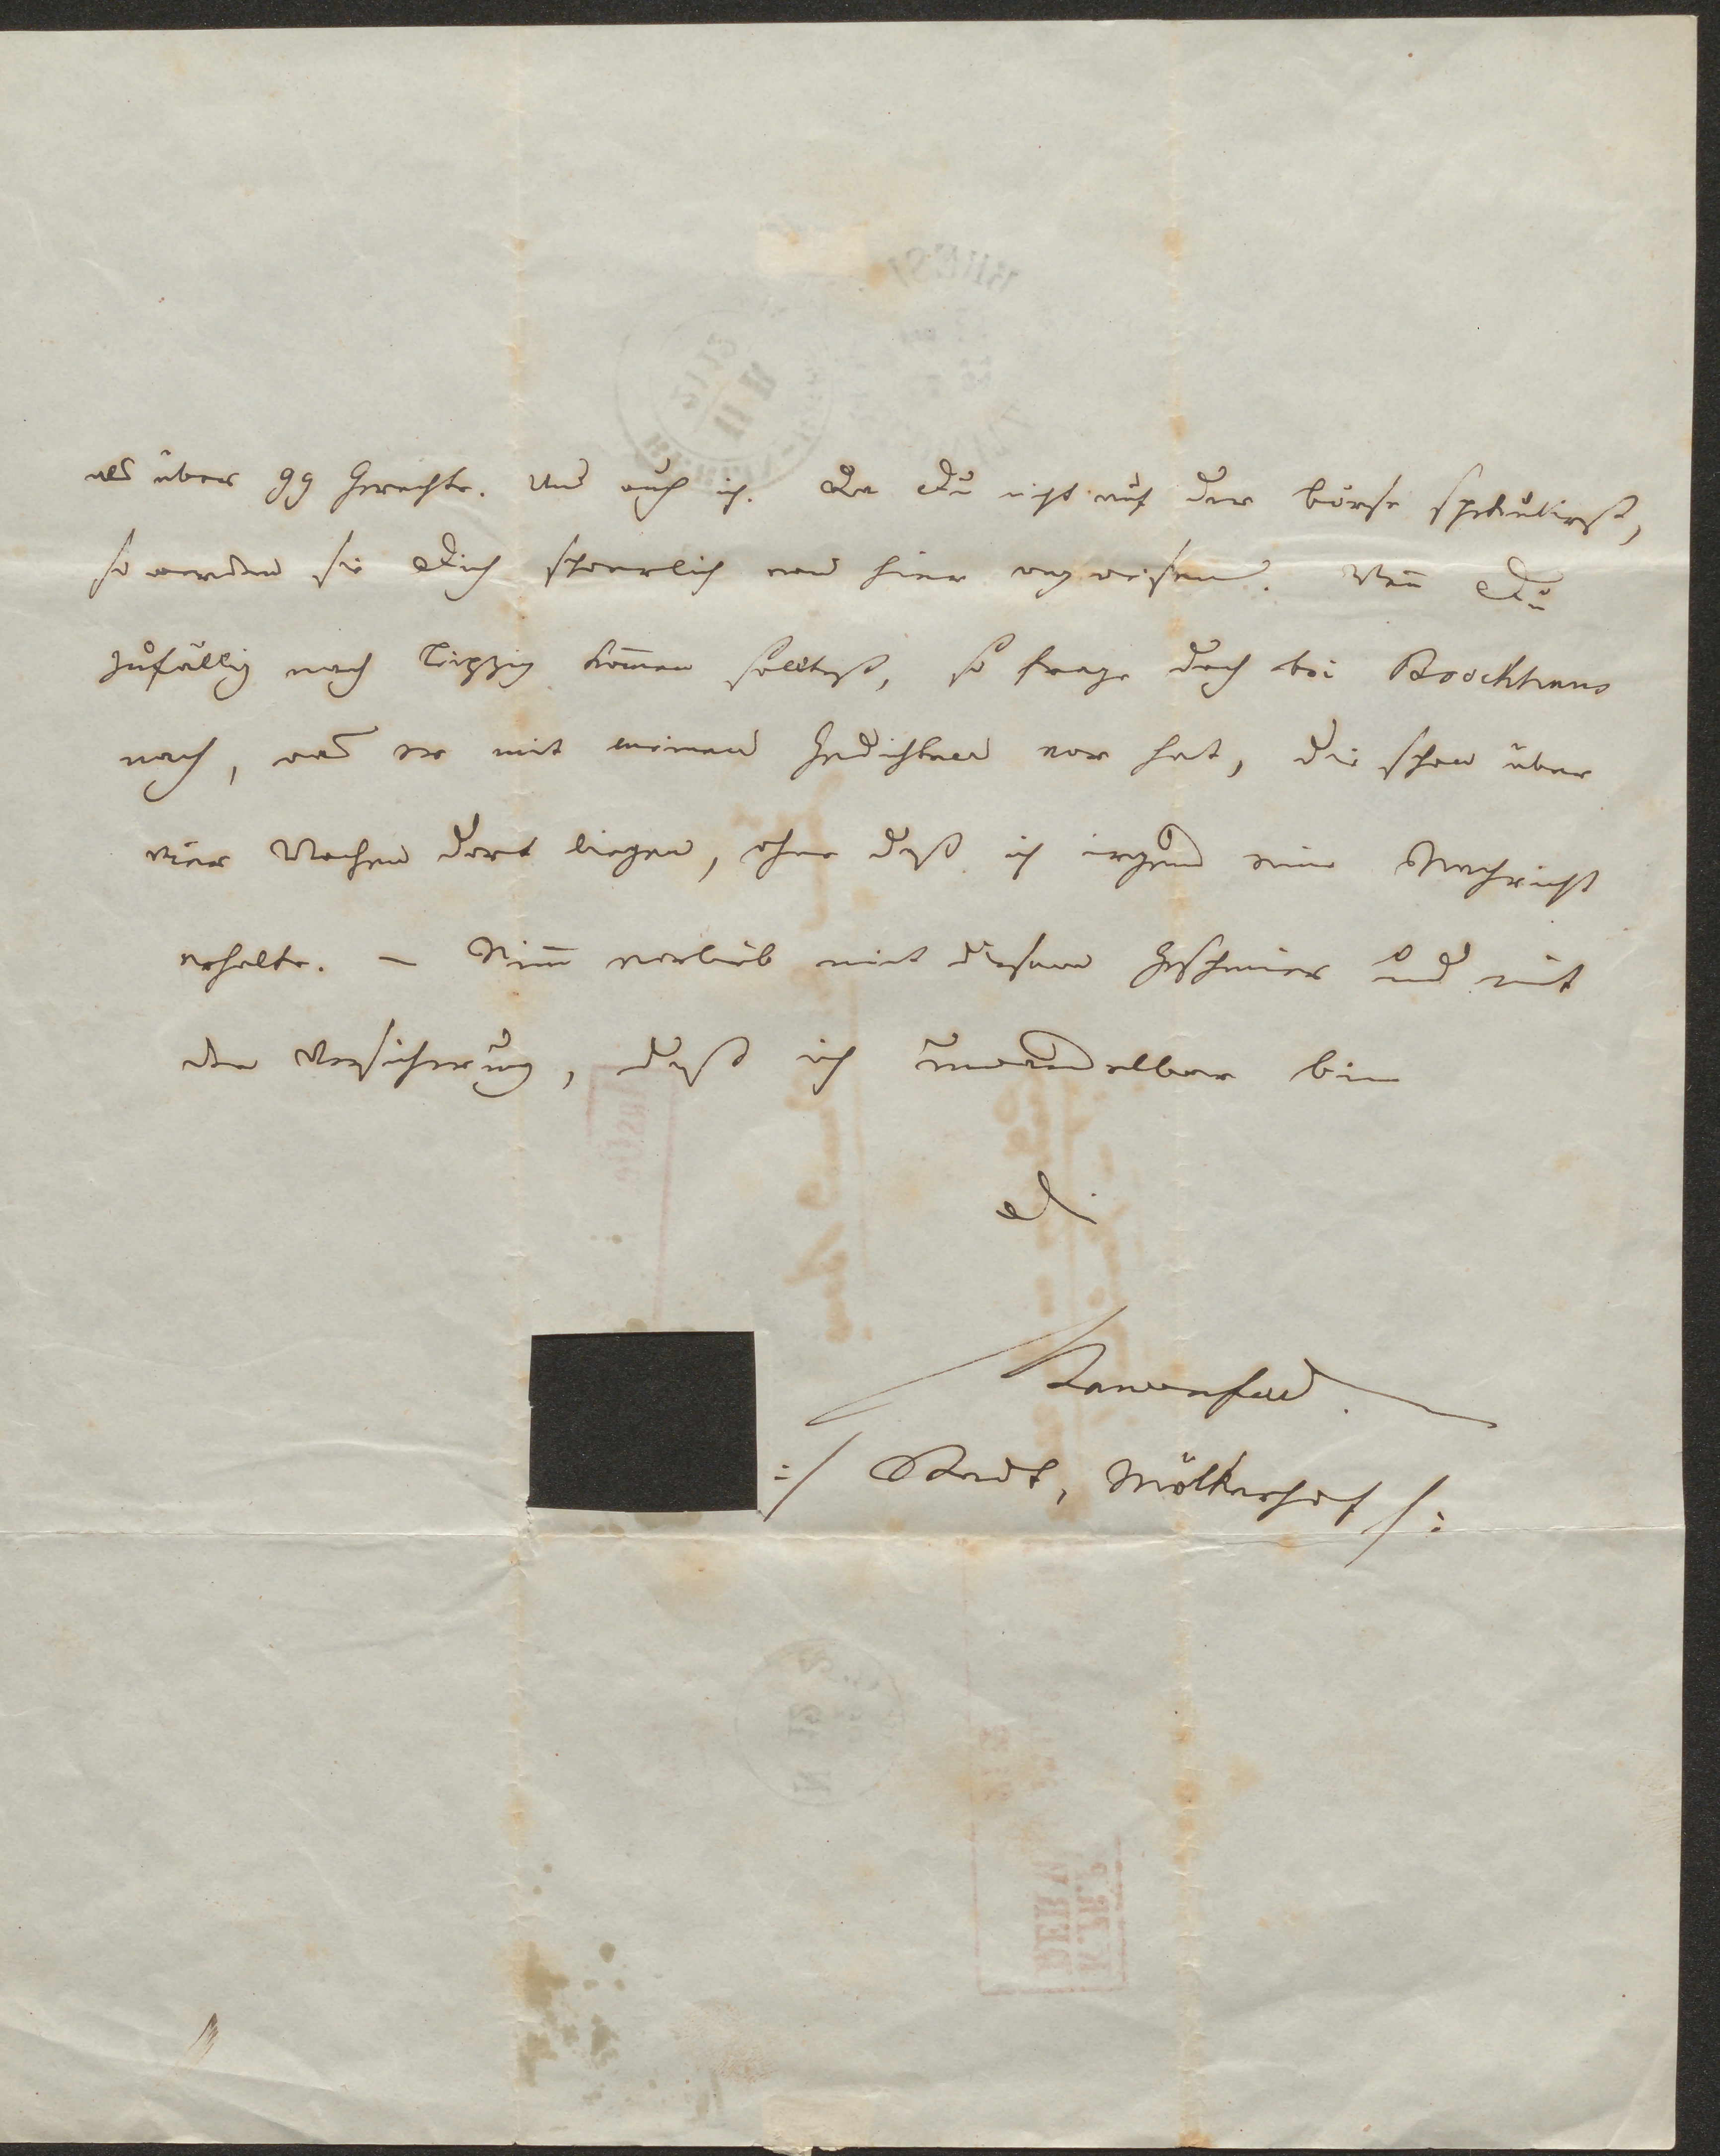 als über 99 Gerechte. Und auch ich. Da Du nicht auf der börse spekulirst,
so werden sie Dich schwerlich von hier wegweisen. Weñ Du
zufällig nach Leipzig kom̄en solltest, so frage doch bei Brockhaus
nach, was er mit meinen Gedichten vor hat, die schon über
vier Wochen dort liegen, ohne daß ich irgend eine Nachricht
erhalte. – Nim̄ verlieb mit diesem Geschmier und mit
der Versicherung, daß ich unwandelbar bin
Dein
:/ Stadt, Mölkerhof /: